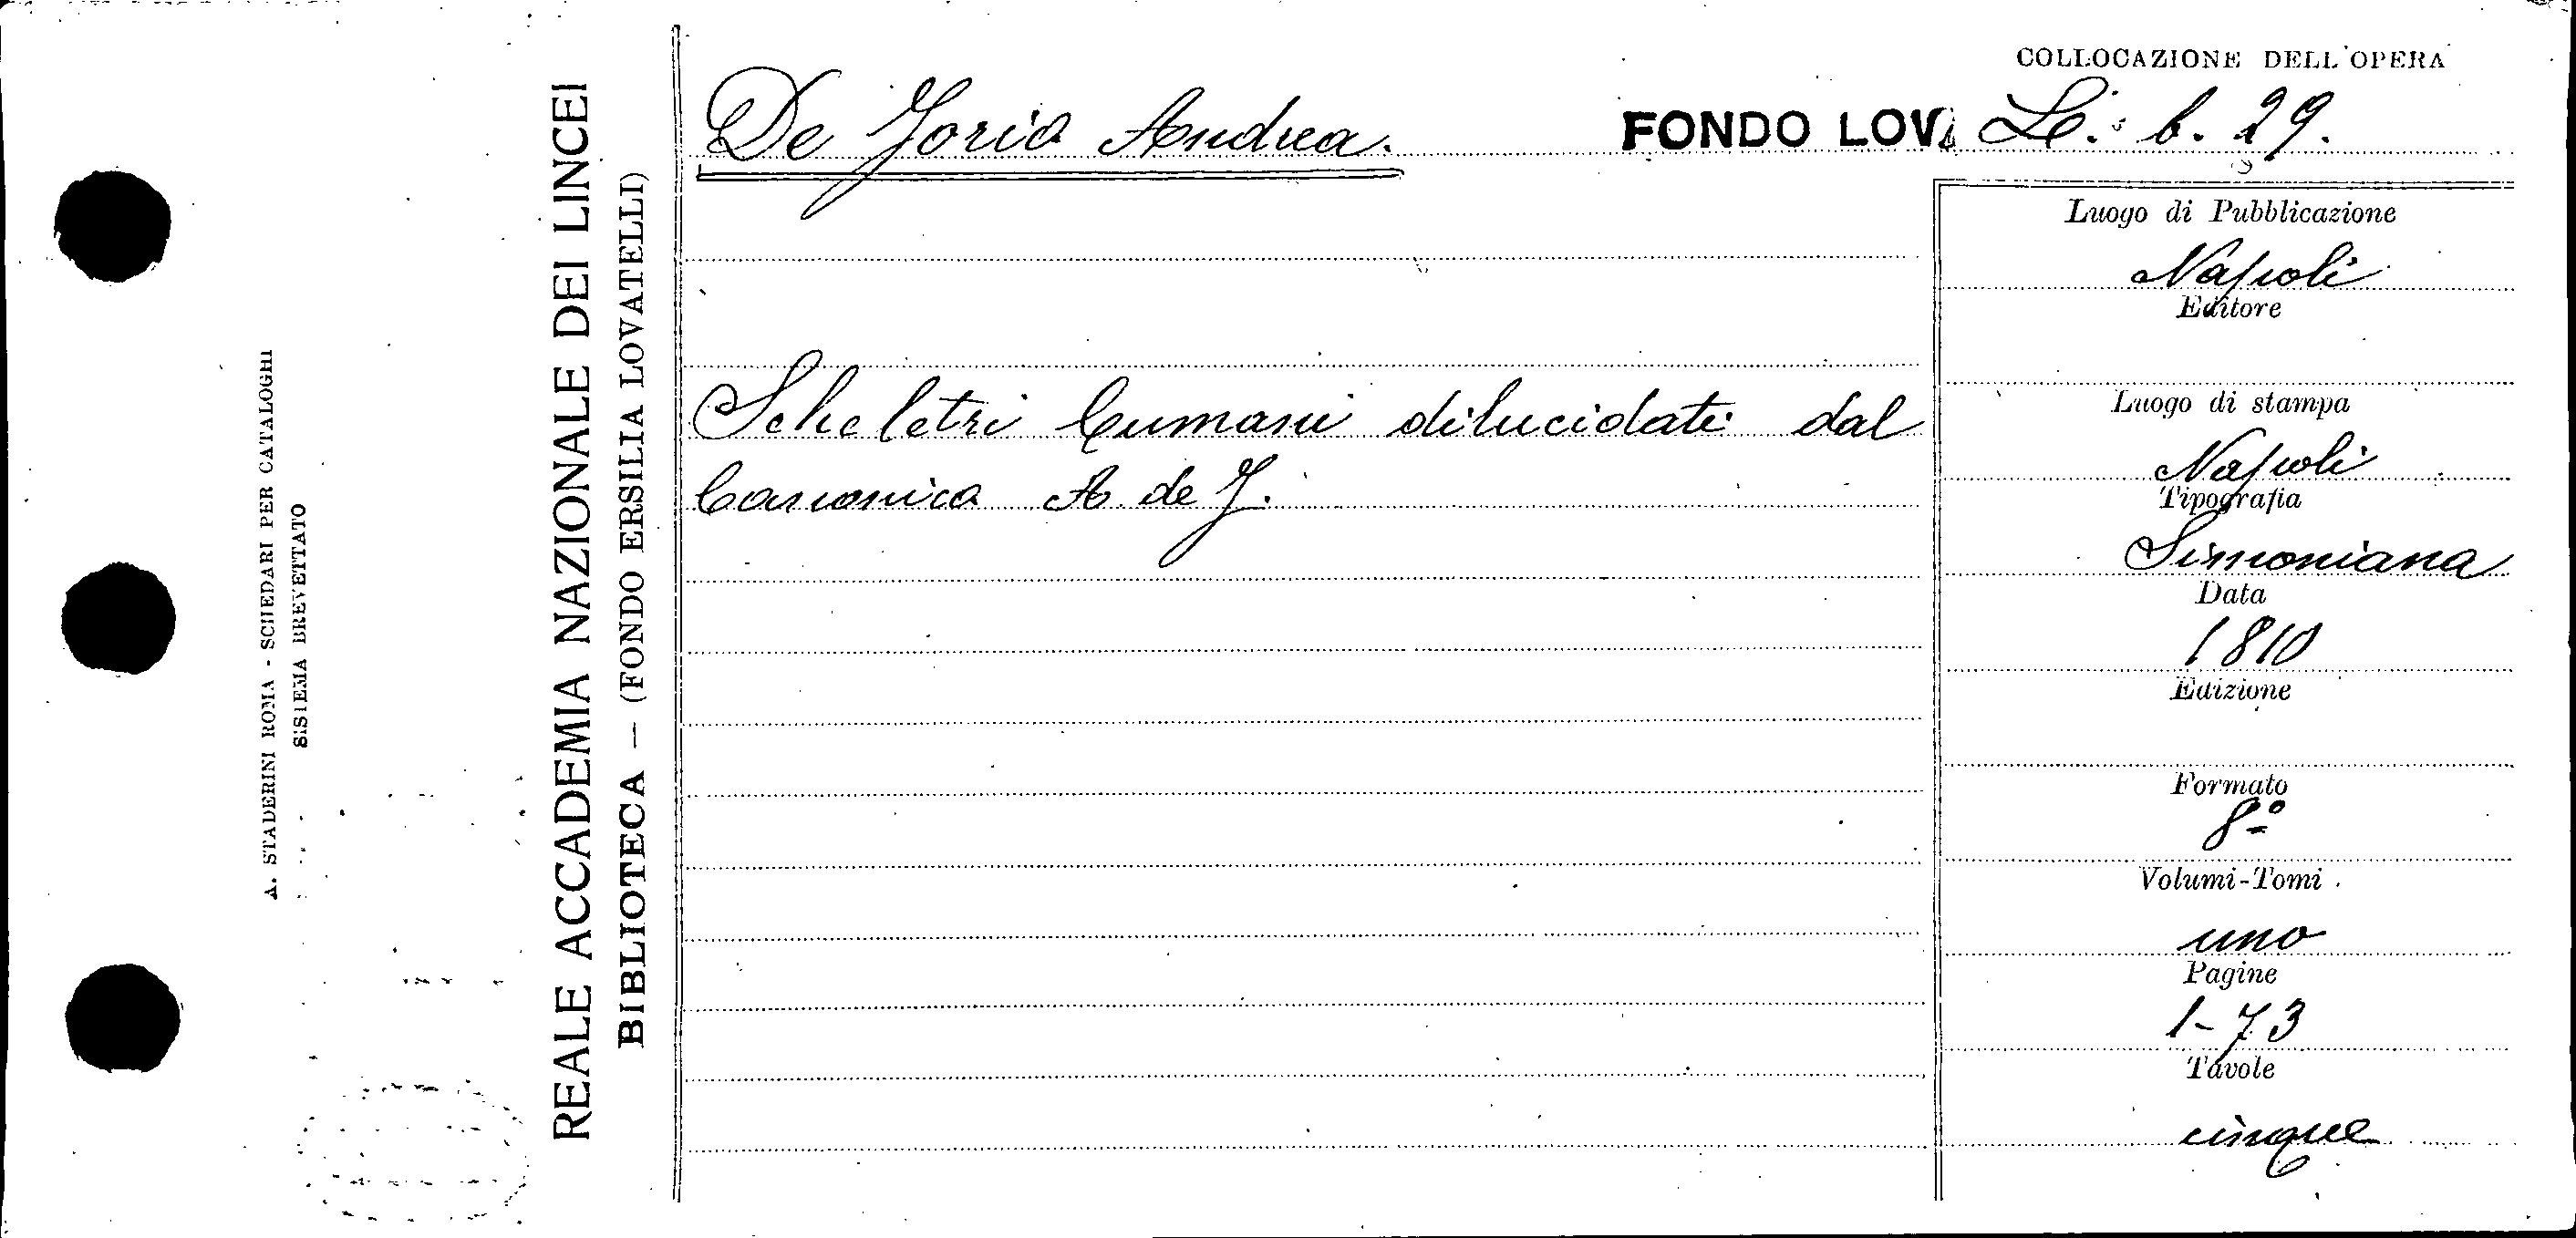 COLLOCAZIONE DELL'OPERA
De Jorio Andrea.
FONDO LOV. Sc. b. 29.
REALE ACCADEMIA NAZIONALE DEI LINCEI
BIBLIOTECA — (FONDO ERSILIA LOVATELLI)
A. STADERINI ROMA - SCHEDARI PER CATALOGHI
SISTEMA BREVETTATO
Scheletri Cumani dilucidati dal
Canonico A. de J.
Luogo di Pubblicazione
Napoli
Editore
Luogo di stampa
Napoli
Tipografia
Simoniana
Data
1810
Edizione
Formato
8º
Volumi-Tomi
uno
Pagine
1-73
Tavole
cinque